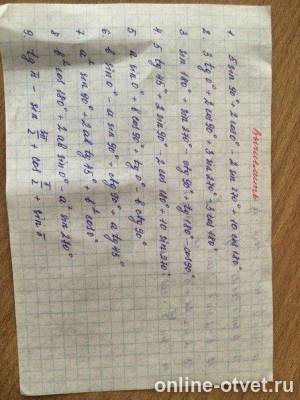 Вычислить
1. 5 sin 90° + 2 cos 0° - 2 sin 270° + 10 cos 180°
2. 3 tg 0° + 2 cos 90° + 3 sin 270° - 3 cos 180°
3. sin 180° + sin 270° - ctg 90° + tg 180° - cos 90°
4. 5 tg 45° + 2 sin 90° - 2 cos 180° + 10 sin 270°
5. a sin 0° + b cos 90° + c tg 0° - b ctg 90°
6. b sin 0° - a sin 90° + ctg 90° + a tg 45°
7. a² sin 90° + 2ab tg 45° + b² cos 0°
8. b² cos 180° + 2ab sin 0° - a² sin 270°
9. tg π - sin 3π/2 + cos π/2 + sin π
online-otvet.ru